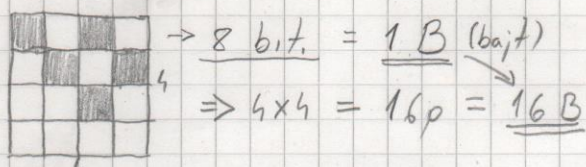 → 8 bit. = 1 B (bajt)
4
⇒ 4x4 = 16p = 16 B